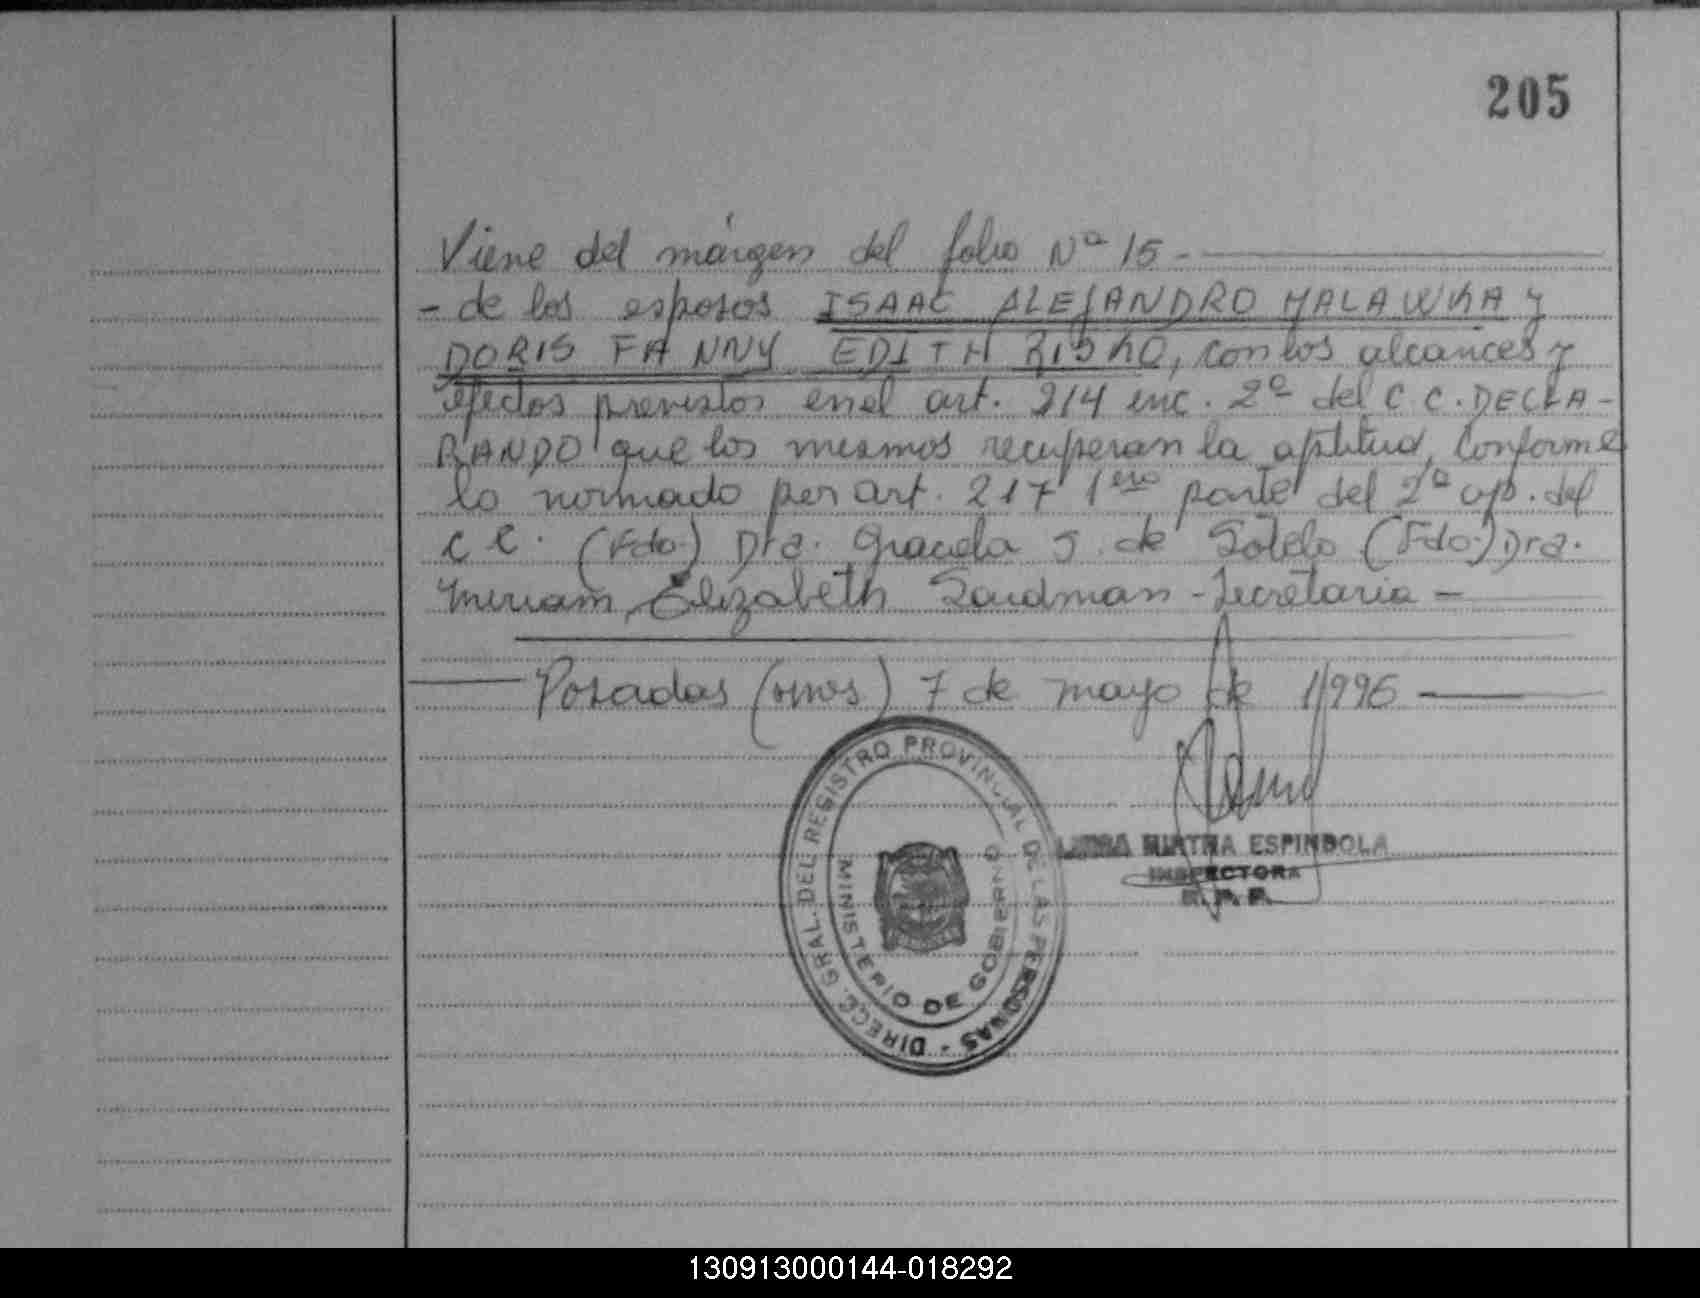 205
Viene del márgen del folio Nº 15 -
- de los esposos ISAAC ALEJANDRO MALAWKA y
DORIS FANNY EDITH RISKO, con los alcances y
efectos previstos en el art. 214 inc. 2º del C C. DECLA-
RANDO que los mismos recuperan la aptitud, conforme
lo normado por art. 217 1era parte del 2º ap. del
C C. (Fdo.) Dra. Graciela S. de Sotelo (Fdo.) Dra.
Miriam Elizabeth - Secretaria -
Posadas (Mnes) 7 de mayo de 1996
DIRECC. GRAL. DEL REGISTRO PROVINCIAL DE LAS PERSONAS -
MINISTERIO DE GOBIERNO
MIRTHA ESPINDOLA
INSPECTORA
R. P. P.
130913000144-018292